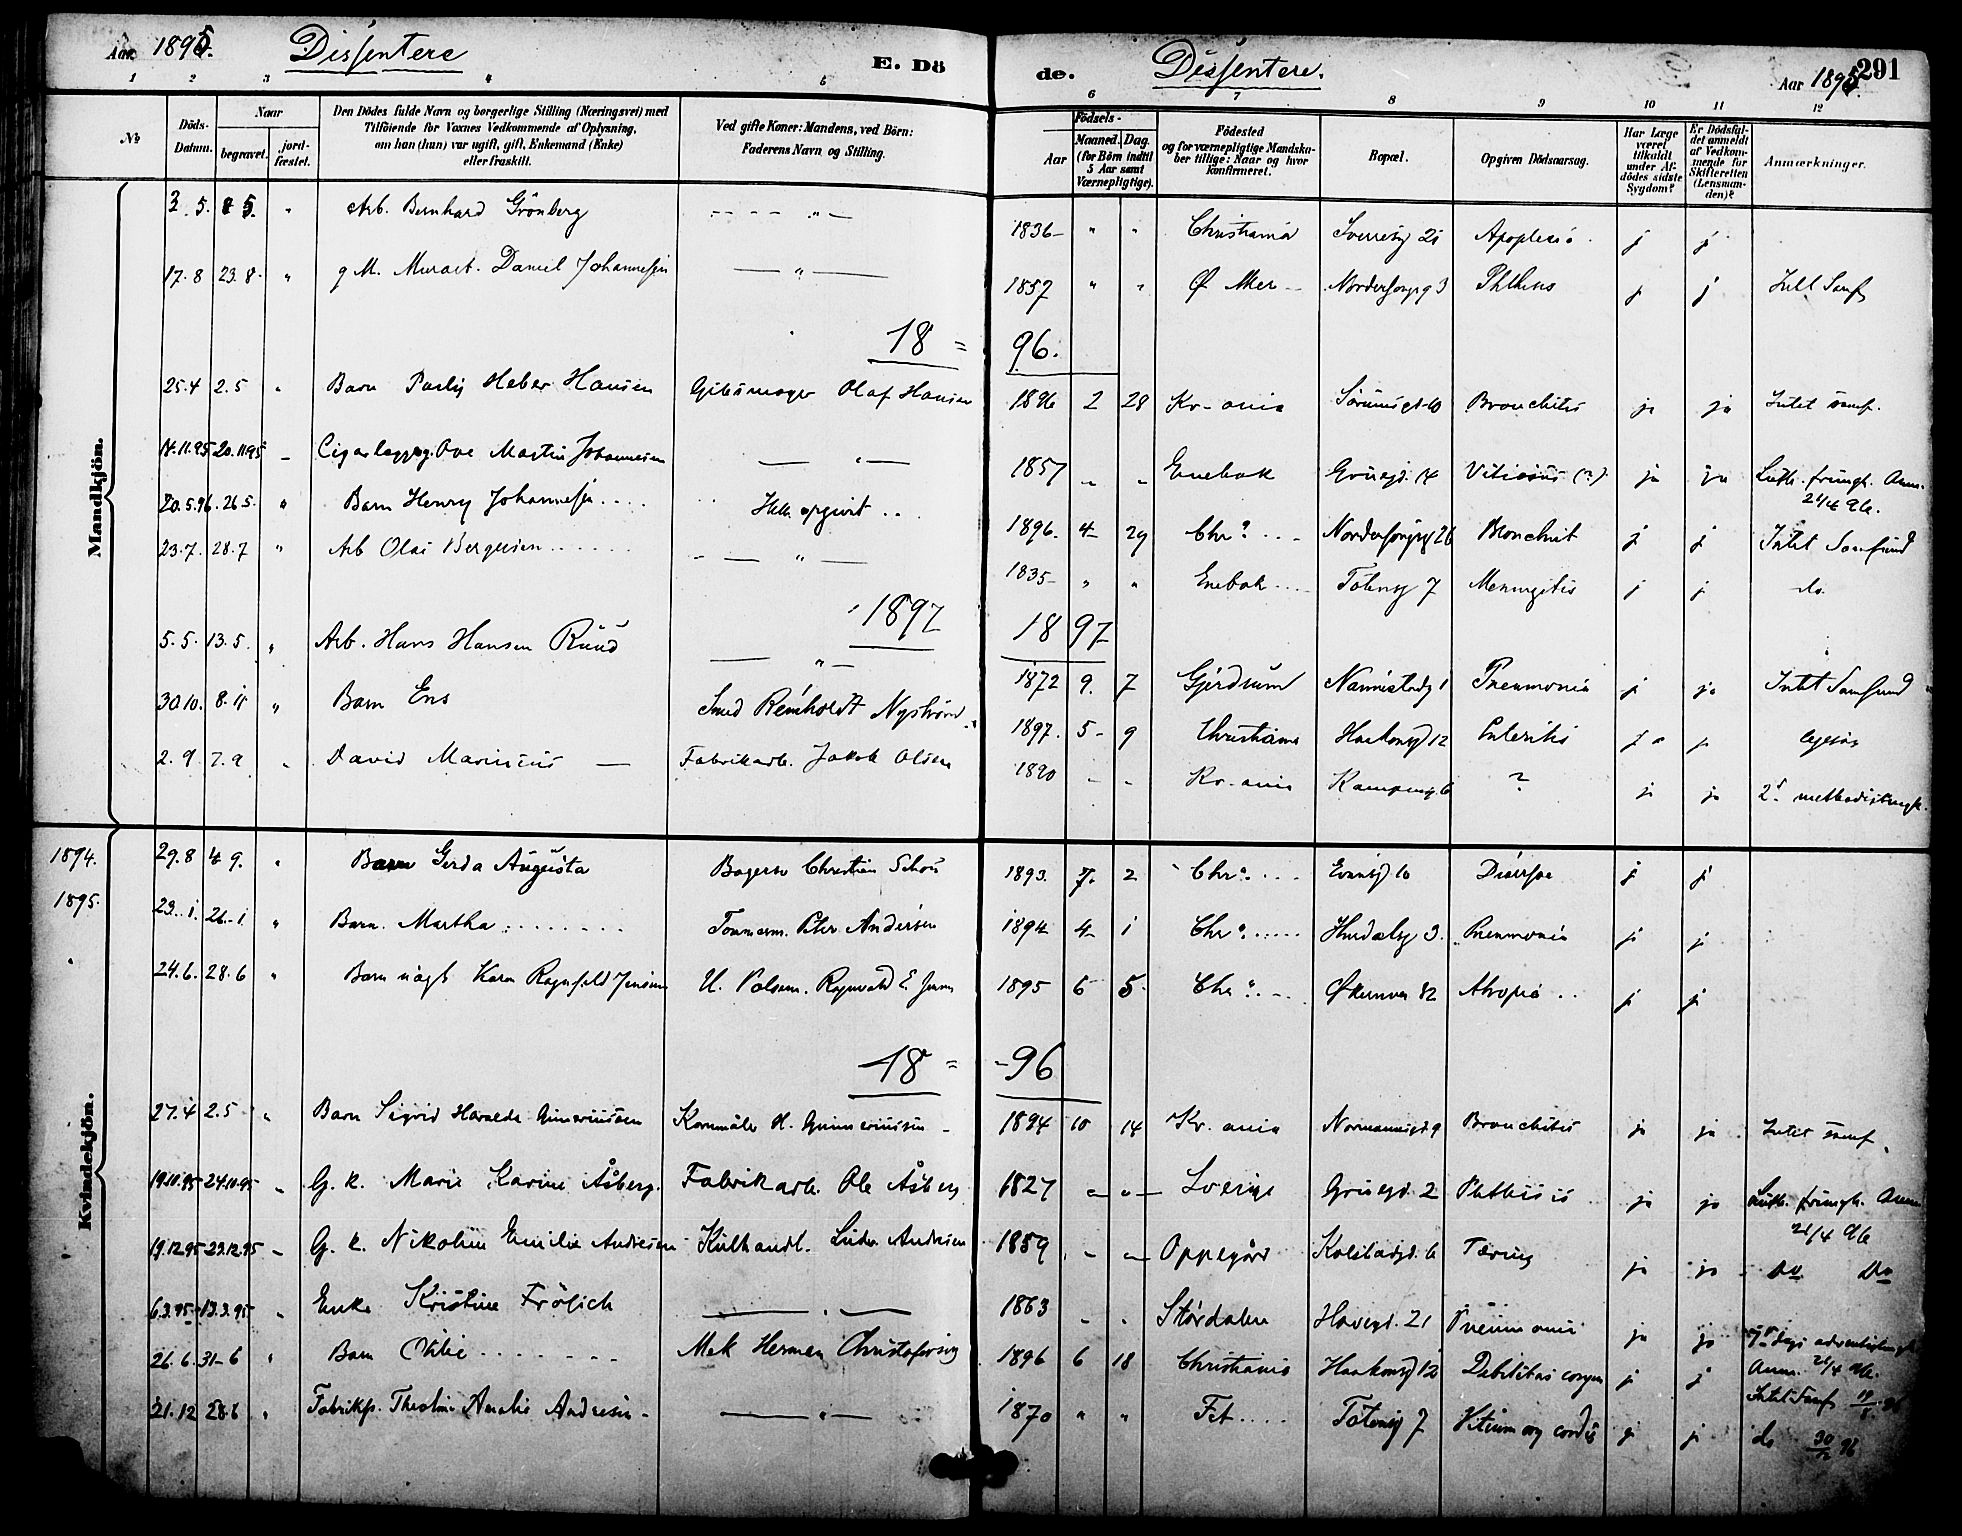 Aar 1895. Dissentere E. Dö
de. Dissentere. Aar 1895. 291
1 2 3 4 5
6 7 8 9 10 11 12
No
Döds-Datum.
Naar
begravet.
jord-fæstet.
Den Dödes fulde Navn og borgerlige Stilling (Næringsvei) med
Tilföiende for Voxnes Vedkommende af Oplysning,
om han (hun) var ugift, gift, Enkemand (Enke)
eller fraskilt.
Ved gifte Koner: Mandens, ved Börn:
Faderens Navn og Stilling.
Födsels-
Aar
Maaned. Dag.
(for Börn indtil
5 Aar samt
Værnepligtige).
Födested
og for værnepligtige Mandska-
ber tillige: Naar og hvor
konfirmeret.
Bopæl.
Opgiven Dödsaarsag.
Har Læge
været
tilkaldt
under Af-
dödes sidste
Sygdom?
Er Dödsfal-
det anmeldt
af Vedkom-
mende for
Skifteretten
(Lensman-
den)?
Anmærkninger.
Mandkjön.
5. 8 5. " Arb. Bernhard Grönberg " 1836 " " Christiania 21 Apoplexia j j
17.8 23.8. " g M. Daniel Johannessen " 1857 " " Ø Aker 3 j j
18 = 96.
25.4 2.5 " Barn Heber Hansen Gibsmager Olaf Hansen 1896 2 28 Kr-ania Bronchitis ja ja Intet samf.
14.11.95 20.11.95 Ove Martin Johannesen " 1857 " " Enebak ja ja Luth. frimgh. Anm. 21/4 96.
20.5.96. 26.5. " Barn Henry Johannesen Ikke opgivet 1896. 4 29 Chr.a Nordersongsg 26 Bronchit j j Intet Samfund
23.7. 28.7 " Arb Olai Bergersen " 1835 " " Enebak Totensg 7 Meningitis j j do.
1897 1897
5.5. 13.5. " Arb. Hans Hansen Ruud " 1872 9. 7 Gjerdrum Nannestadg 1 Pneumonia j ja Intet Samfund
30.10. 8.11 " Barn Ens Smed Reinholdt Nyström 1897. 5 9 Christiania Haakonsg 12 Enteritis j
2.9 7.9 " David Marinius Fabrikarb. Jakob Olsen 1890 - - Kr-ania Kampensg. 6 ? ja ja 2d methodistmgh.
Kvindekjön.
1894. 29.8 4 9. " Barn Gerda Augusta Bagersv Christian Schou 1893. 7. 2 Chra. 10 Diarrhoe j j
1895. 23.1. 26.1 " Barn. Martha Tømmerm. Peter Andersen 1894 4 1 Chra. Hurdalsg 3. Pneumonia j j
24.6. 28.6 " Barn Karen Ragnhild Jensen Ragnvald E. Jensen 1895 6 5 Chra. Økernvn 82 Atropia j j
18 = -96
27.4 2.5 " Barn Sigrid Haralda Gunneriussen Kornmåler H. Gunneriussen 1894 10 14 Kr. ania Normannsgd 9 Bronchitis ja ja Intet samf.
19.10.95 24.10.95 " G. k. Marie Karine Åsberg. Fabrikarb. Ole Åsberg 1827 " " Sverige 2 Phthisis ja ja Luth. frimgh. Anm. 21/4 96
19.12.95 23.12.95 " G. k. Nikoline Emilie Andresen Kulhandl. Andresen 1859 " " Oppegård Kolstadgd. 6 Tæring ja ja Do Do
6.3.95 13.3.95 " Enke Kristine Frölich " 1863 " " Stördalen 21 Pneumonia ja ja 7de dags adventistmgh. Anm. 21/4 96.
26.6. 31-6 " Barn Otilie Mek Herman Christofersen 1896 6 18 Christiania Haakonsg 12 Debilitas congen j j Intet Samf 19/8 96
21.12 28 6 " Fabrikp. Amalie Andresen " 1870 " " Fet Totensg 7 Vitium org cordis j j do 30/12 96